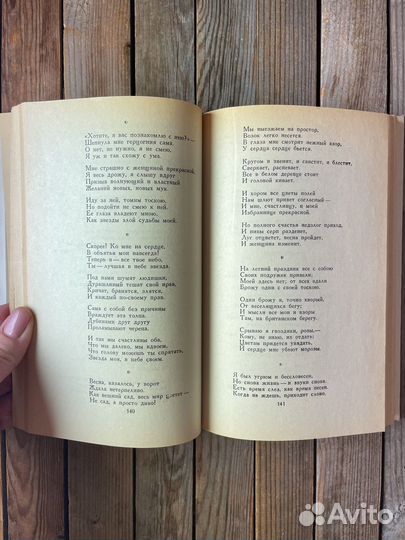 *
«Хотите, я вас познакомлю с нею?» —
Шепнула мне герцогиня сама.
О нет, не нужно, я не смею,
Я уж и так схожу с ума.
Мне страшно с женщиной прекрасной,
Я весь дрожу, я слышу вдруг
Призыв волнующий и властный
Желаний новых, новых мук.
Иду за ней, томим тоскою,
Но подойти не смею к ней.
Ее глаза владеют мною,
Как звезды злой судьбы моей.
*
Скорее! Ко мне на сердце,
В объятья мои навсегда!
Теперь я — все твое небо,
Ты — лучшая в небе звезда.
Под нами шумят людишки,
Дурашливый тешат свой нрав,
Кричат, бранятся, злятся,
И каждый по-своему прав.
Сама с собой без причины
Враждует эта толпа.
Дубинами друг другу
Проламывают черепа.
И так мы счастливы оба,
Что мы далеко, мы вдвоем,
Что голову можешь ты спрятать,
Звезда моя, в небе своем.
*
Весна, казалось, у ворот
Ждала нетерпеливо.
Как вешний сад, весь мир цветет —
Не сад, а просто диво!
140
Мы выезжаем на простор,
Возок легко несется.
В глаза мне смотрит нежный взор,
У сердца сердце бьется.
Кругом и звенит, и свистит, и блестит,
Сверкает, распевает.
Все в белом деревцо стоит
И головой кивает.
И хором все цветы полей
Нам шлют привет согласный —
И мне, счастливцу, и моей
Избраннице прекрасной.
Но полного счастья недолог приход,
И нивы серп разденет,
Луг отцветет, весна пройдет,
И женщина изменит.
*
На летний праздник все с собою
Своих подружек привели;
Моей здесь нет; от всех вдали
Брожу один с своей тоскою.
Один брожу я, точно хворый,
От веселящихся бегу;
И мысли все мои и взоры
Там, на британском берегу.
Срываю я гвоздики, розы, —
Кому, не знаю, их отдать;
Цветам придется увядать,
И сердце мне убьют морозы.
*
Я был угрюм и бессловесен,
Но снова жизнь — в звуки снова.
Есть время слез, как время песен,
Когда их ждешь, приходит слово.
141
Avito